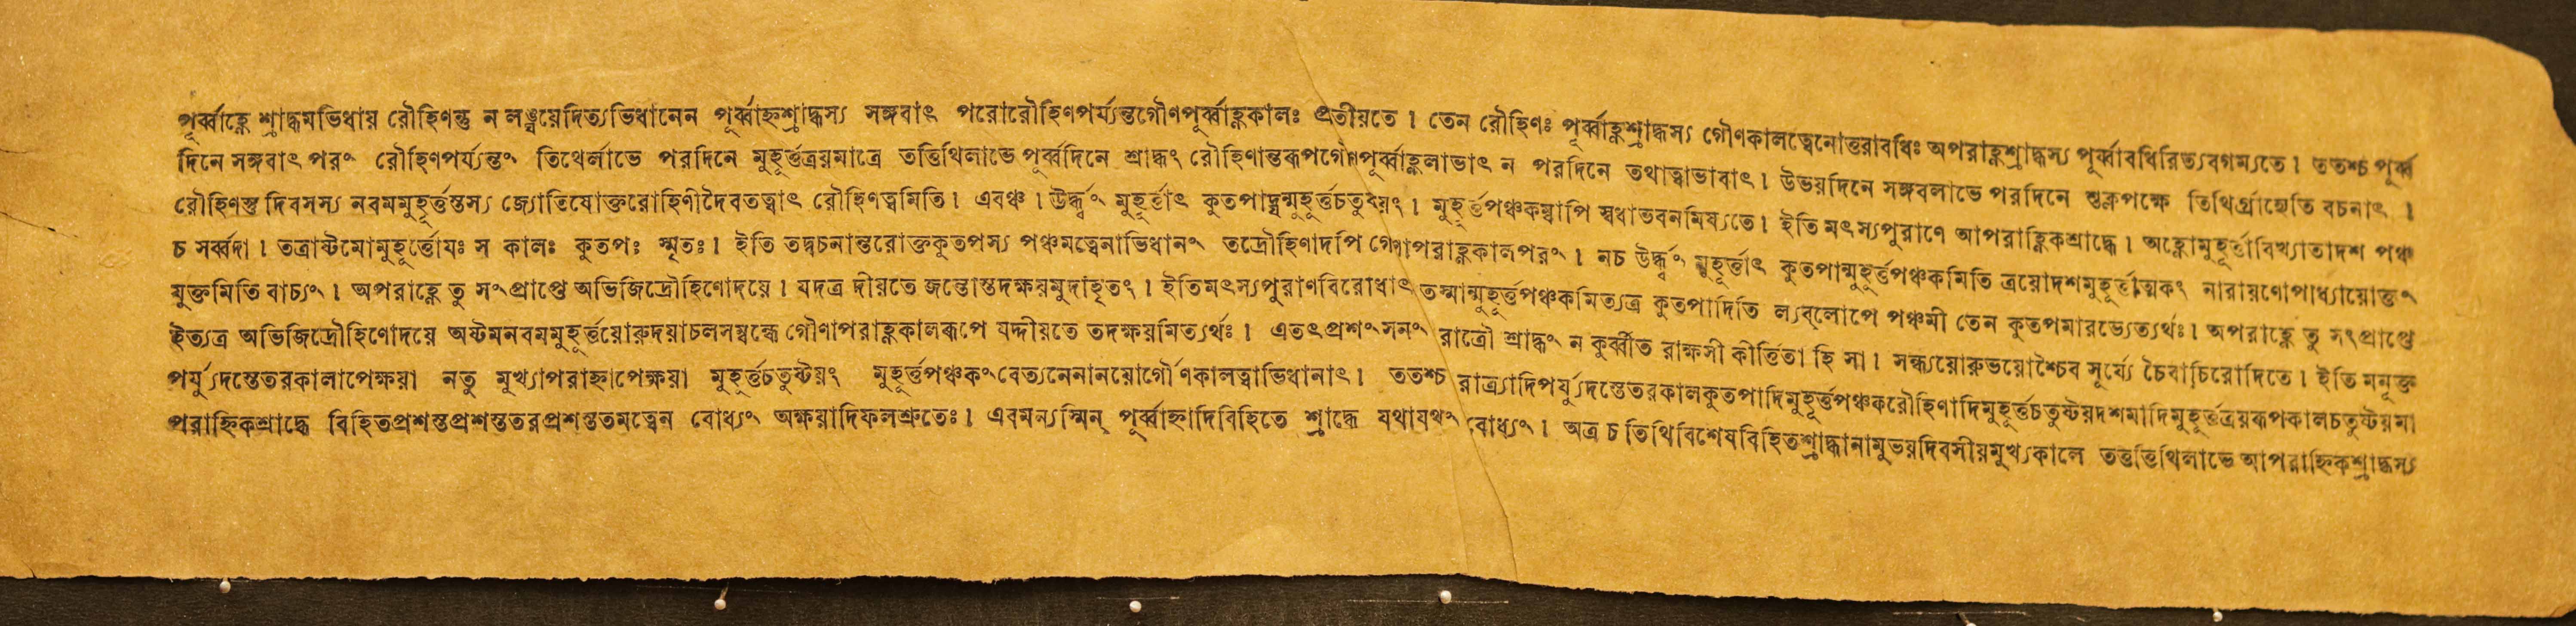 পূর্ব্বাহ্ণে শ্রাদ্ধমভিধায় রৌহিণন্তু ন লঙ্ঘয়েদিত্যভিধানেন পূর্ব্বাহ্নশ্রাদ্ধস্য সঙ্গবাৎ পরোরৌহিণপর্য্যন্তগৌণপূর্ব্বাহ্ণকালঃ প্রতীয়তে । তেন রৌহিণঃ পূর্ব্বাহ্ণশ্রাদ্ধস্য গৌণকালত্বেনোত্তরাবধিঃ অপরাহ্ণশ্রাদ্ধস্য পূর্ব্বাবধিরিত্যবগম্যতে । ততশ্চ পূর্ব্ব
দিনে সঙ্গবাৎ পরং রৌহিণপর্য্যন্তং তিথের্লাভে পরদিনে মুহূর্ত্তত্রয়মাত্রে তত্তিথিলাভে পূর্ব্বদিনে শ্রাদ্ধং রৌহিণান্তরূপগৌণপূর্ব্বাহ্ণলাভাৎ ন পরদিনে তথাত্বাভাবাৎ । উভয়দিনে সঙ্গবলাভে পরদিনে শুক্লপক্ষে তিথির্গ্রাহ্যেতি বচনাৎ ।
রৌহিণস্তু দিবসস্য নবমমুহূর্ত্তস্তস্য জ্যোতিষোক্তরোহিণীদৈবতত্বাৎ রৌহিণত্বমিতি । এবঞ্চ । ঊর্দ্ধ্বং মুহূর্ত্তাৎ কুতপাদ্যন্মুহূর্ত্তচতুষ্টয়ং । মুহূর্ত্তপঞ্চকম্বাপি স্বধাভবনমিষ্যতে । ইতি মৎস্যপুরাণে আপরাহ্ণিকশ্রাদ্ধে । অহ্নোমুহূর্ত্তাবিখ্যাতাদশ পঞ্চ
চ সর্ব্বদা । তত্রাষ্টমোমুহূর্ত্তোযঃ স কালঃ কুতপঃ স্মৃতঃ । ইতি তদ্বচনান্তরোক্তকুতপস্য পঞ্চমত্বেনাভিধানং তদ্রৌহিণাদপি গৌণাপরাহ্ণকালপরং । নচ ঊর্দ্ধ্বং মুহূর্ত্তাৎ কুতপান্মুহূর্ত্তপঞ্চকমিতি ত্রয়োদশমুহূর্ত্তাত্মকং নারায়ণোপাধ্যায়োক্তং
যুক্তমিতি বাচ্যং । অপরাহ্ণে তু সংপ্রাপ্তে অভিজিদ্রৌহিণোদয়ে । যদত্র দীয়তে জন্তোস্তদক্ষয়মুদাহৃতং । ইতিমৎস্যপুরাণবিরোধাৎ তস্মান্মুহূর্ত্তপঞ্চকমিত্যত্র কুতপাদিতি ল্যব্‌লোপে পঞ্চমী তেন কুতপমারভ্যেত্যর্থঃ । অপরাহ্ণে তু সংপ্রাপ্তে
ইত্যত্র অভিজিদ্রৌহিণোদয়ে অষ্টমনবমমুহূর্ত্তয়োরুদয়াচলসম্বন্ধে গৌণাপরাহ্ণকালরূপে যদ্দীয়তে তদক্ষয়মিত্যর্থঃ । এতৎপ্রশংসনং রাত্রৌ শ্রাদ্ধং ন কুর্ব্বীত রাক্ষসী কীর্ত্তিতা হি সা । সন্ধ্যয়োরুভয়োশ্চৈব সূর্য্যে চৈবাচিরোদিতে । ইতি মনূক্ত
পর্য্যুদস্তেতরকালাপেক্ষয়া নতু মুখ্যাপরাহ্নাপেক্ষয়া মুহূর্ত্তচতুষ্টয়ং মুহূর্ত্তপঞ্চকংবেত্যনেনানয়োর্গৌণকালত্বাভিধানাৎ । ততশ্চ রাত্র্যাদিপর্য্যুদস্তেতরকালকুতপাদিমুহূর্ত্তপঞ্চকরৌহিণাদিমুহূর্ত্তচতুষ্টয়দশমাদিমুহূর্ত্তত্রয়রূপকালচতুষ্টয়মা
পরাহ্নিকশ্রাদ্ধে বিহিতপ্রশস্তপ্রশস্ততরপ্রশস্ততমত্বেন বোধ্যং অক্ষয়াদিফলশ্রুতেঃ । এবমন্যস্মিন্ পূর্ব্বাহ্নাদিবিহিতে শ্রাদ্ধে যথাযথং বোধ্যং । অত্র চ তিথিবিশেষবিহিতশ্রাদ্ধানামুভয়দিবসীয়মুখ্যকালে তত্তত্তিথিলাভে আপরাহ্নিকশ্রাদ্ধস্য